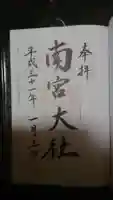 奉拝
南宮大社
平成三十一年一月二日